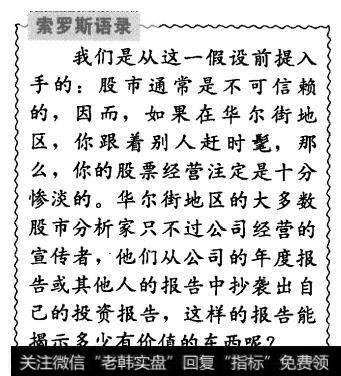 索罗斯语录
我们是从这一假设前提入
手的：股市通常是不可信赖
的，因而，如果在华尔街地
区，你跟着别人赶时髦，那
么，你的股票经营注定是十分
惨淡的。华尔街地区的大多数
股市分析家只不过公司经营的
宣传者，他们从公司的年度报
告或其他人的报告中抄袭出自
己的投资报告，这样的报告能
揭示多少有价值的东西呢？
关注微信“老韩实盘”回复“指标”免费领